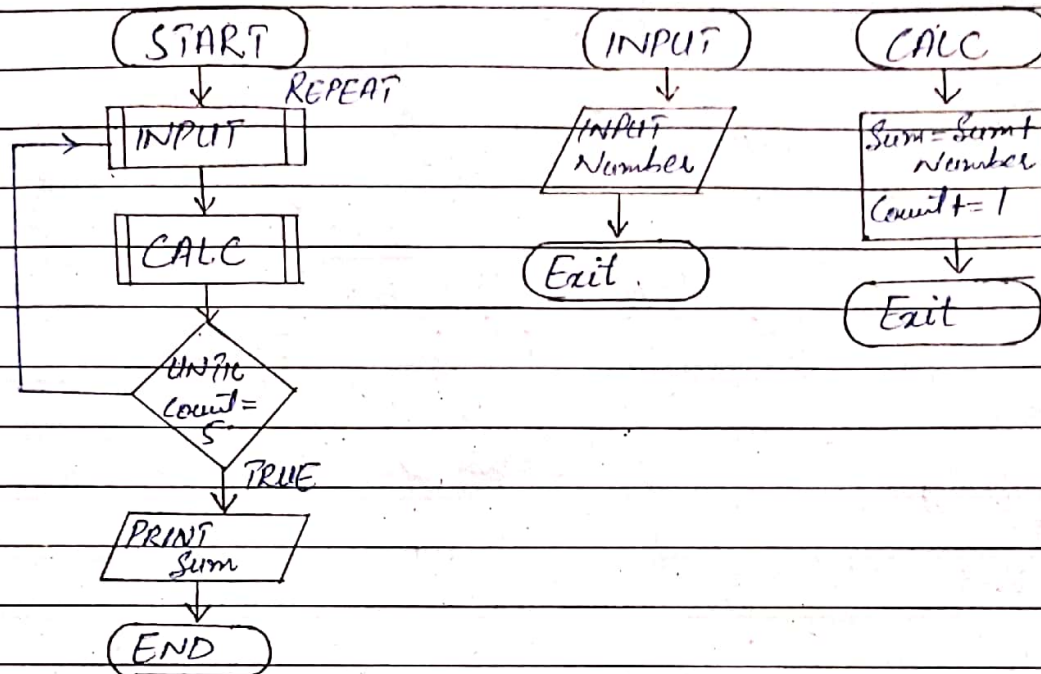 START
REPEAT
INPUT
CALC
UNTIL
Count=
5
TRUE
PRINT
Sum
END
INPUT
INPUT
Number
Exit.
CALC
Sum=Sum+
Number
Count+=1
Exit